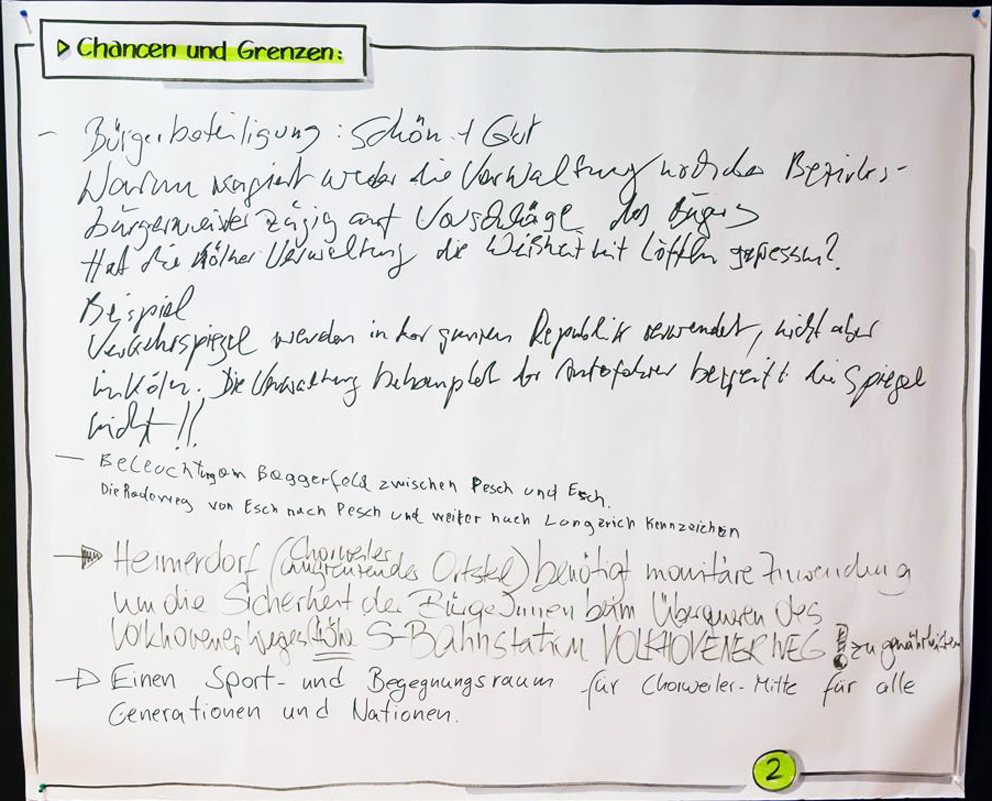 ▷ Chancen und Grenzen:
- Bürgerbeteiligung: Schön + Gut
Warum reagiert weder die Verwaltung noch der Bezirks-
bürgermeister zügig auf Vorschläge des Bügers
Hat die Kölner Verwaltung die Weisheit mit Löffeln gefressen?
Beispiel
Verkehrsspiegel werden in der ganzen Republik verwendet, nicht aber
in Köln. Die Verwaltung behauptet der Autofahrer begreift die Spiegel
nicht!!
- Beleuchtung am Baggerfeld zwischen Pesch und Esch.
Die Radeweg von Esch nach Pesch und weiter nach Longerich Kennzeichen
Heimerdorf (Chorweiler
angrenzendes Ortsteil) benötigt monitäre Zuwendung
um die Sicherheit der BürgerInnen beim Überqueren des
Volkhovener Weges Höhe S-Bahnstation VOLKHOVENER WEG zu gewährleisten
Einen Sport- und Begegnungsraum für Chorweiler-Mitte für alle
Generationen und Nationen.
2